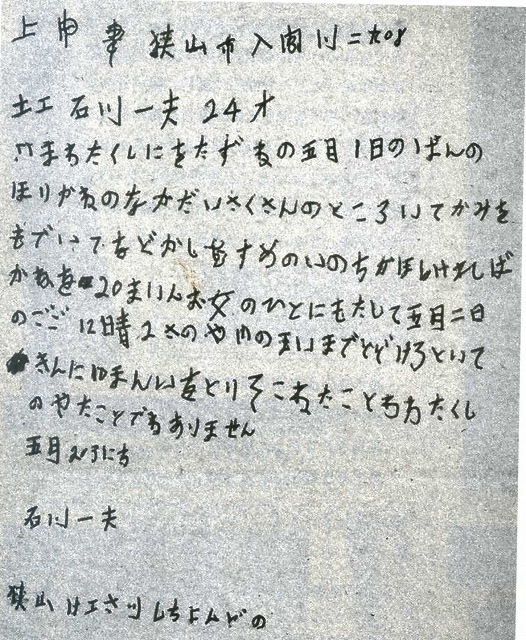 上申書 狭山市入間川二九〇8
土工 石川一夫 24才
まちたくしにをたずねの五月1日のばんの
ほりがねのなかだいさくさんのところいてかみを
もでいてなどかしむすめのいのちがほしければ
かねを20まいんお女のひとにもたして五月二日
のごご12時 2さのやの まいまでとどけろといて
きんにゆまんいをとりそこねたことちわたくし
のやたことでわありません
五月 にち
石川一夫
狭山けエさつしちよんどの